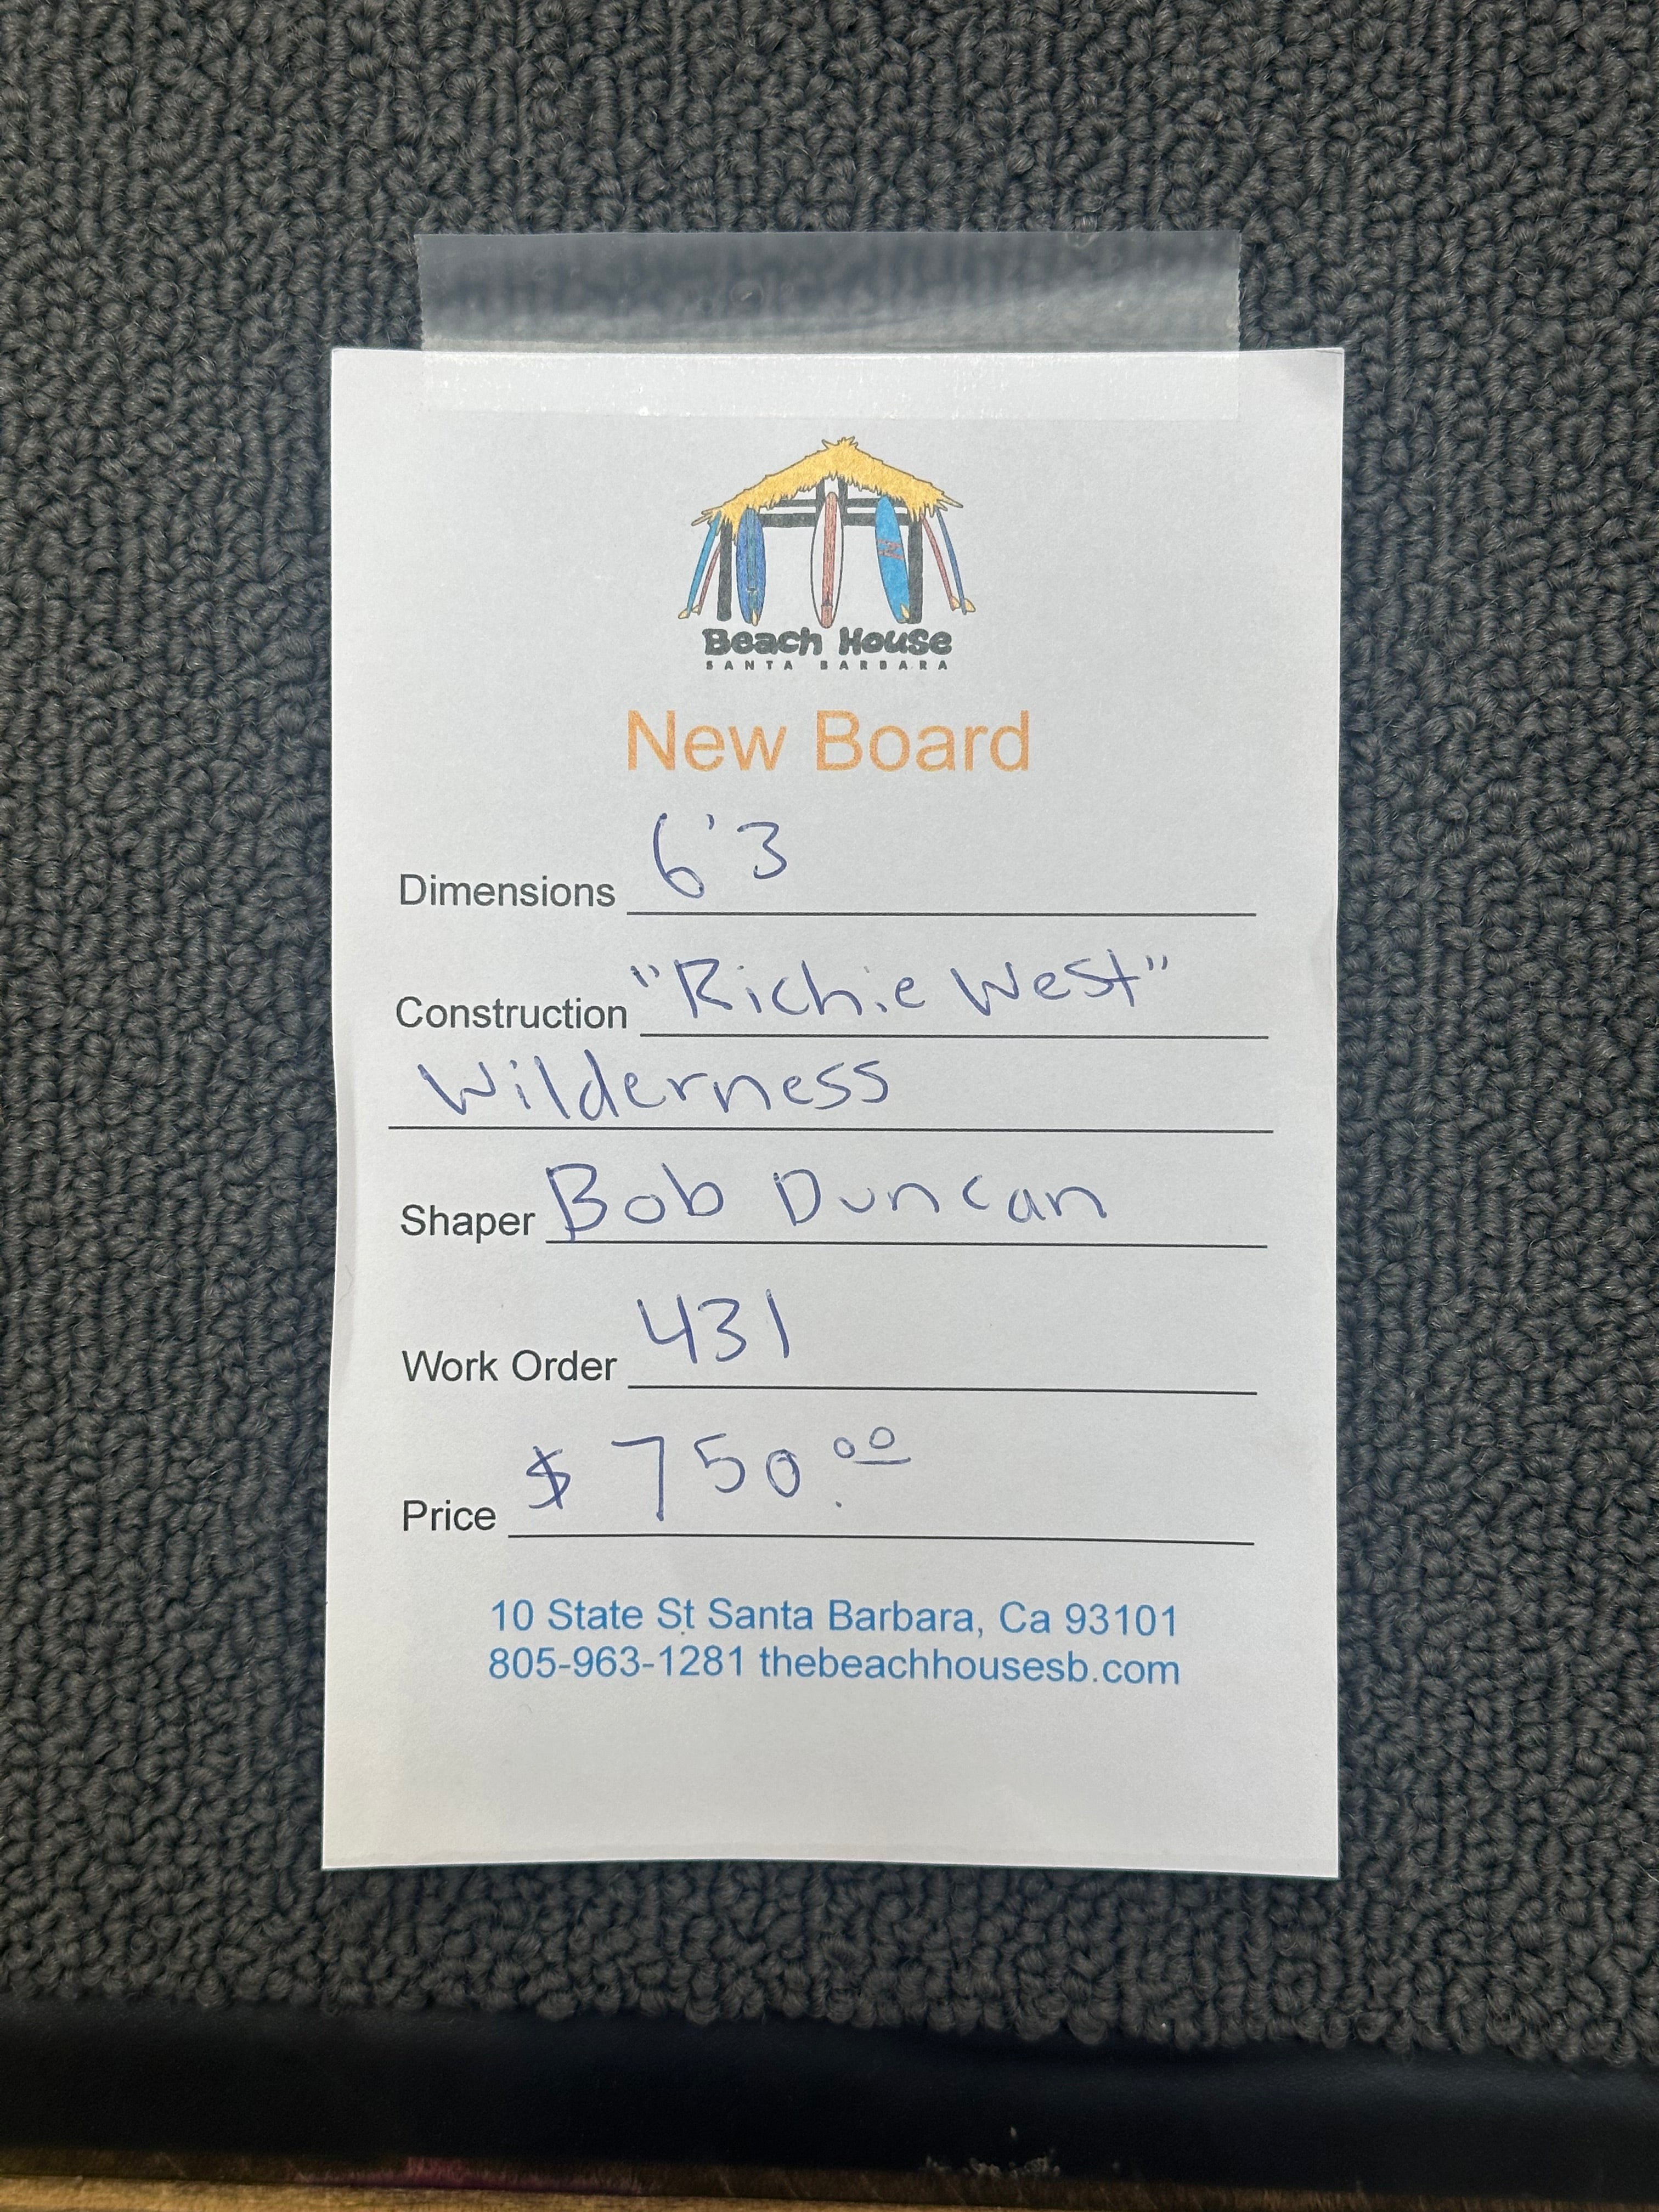 Beach House
SANTA BARBARA
New Board
Dimensions 6'3
Construction "Richie West"
Wilderness
Shaper Bob Duncan
Work Order 431
Price $ 750.00
10 State St Santa Barbara, Ca 93101
805-963-1281 thebeachhousesb.com